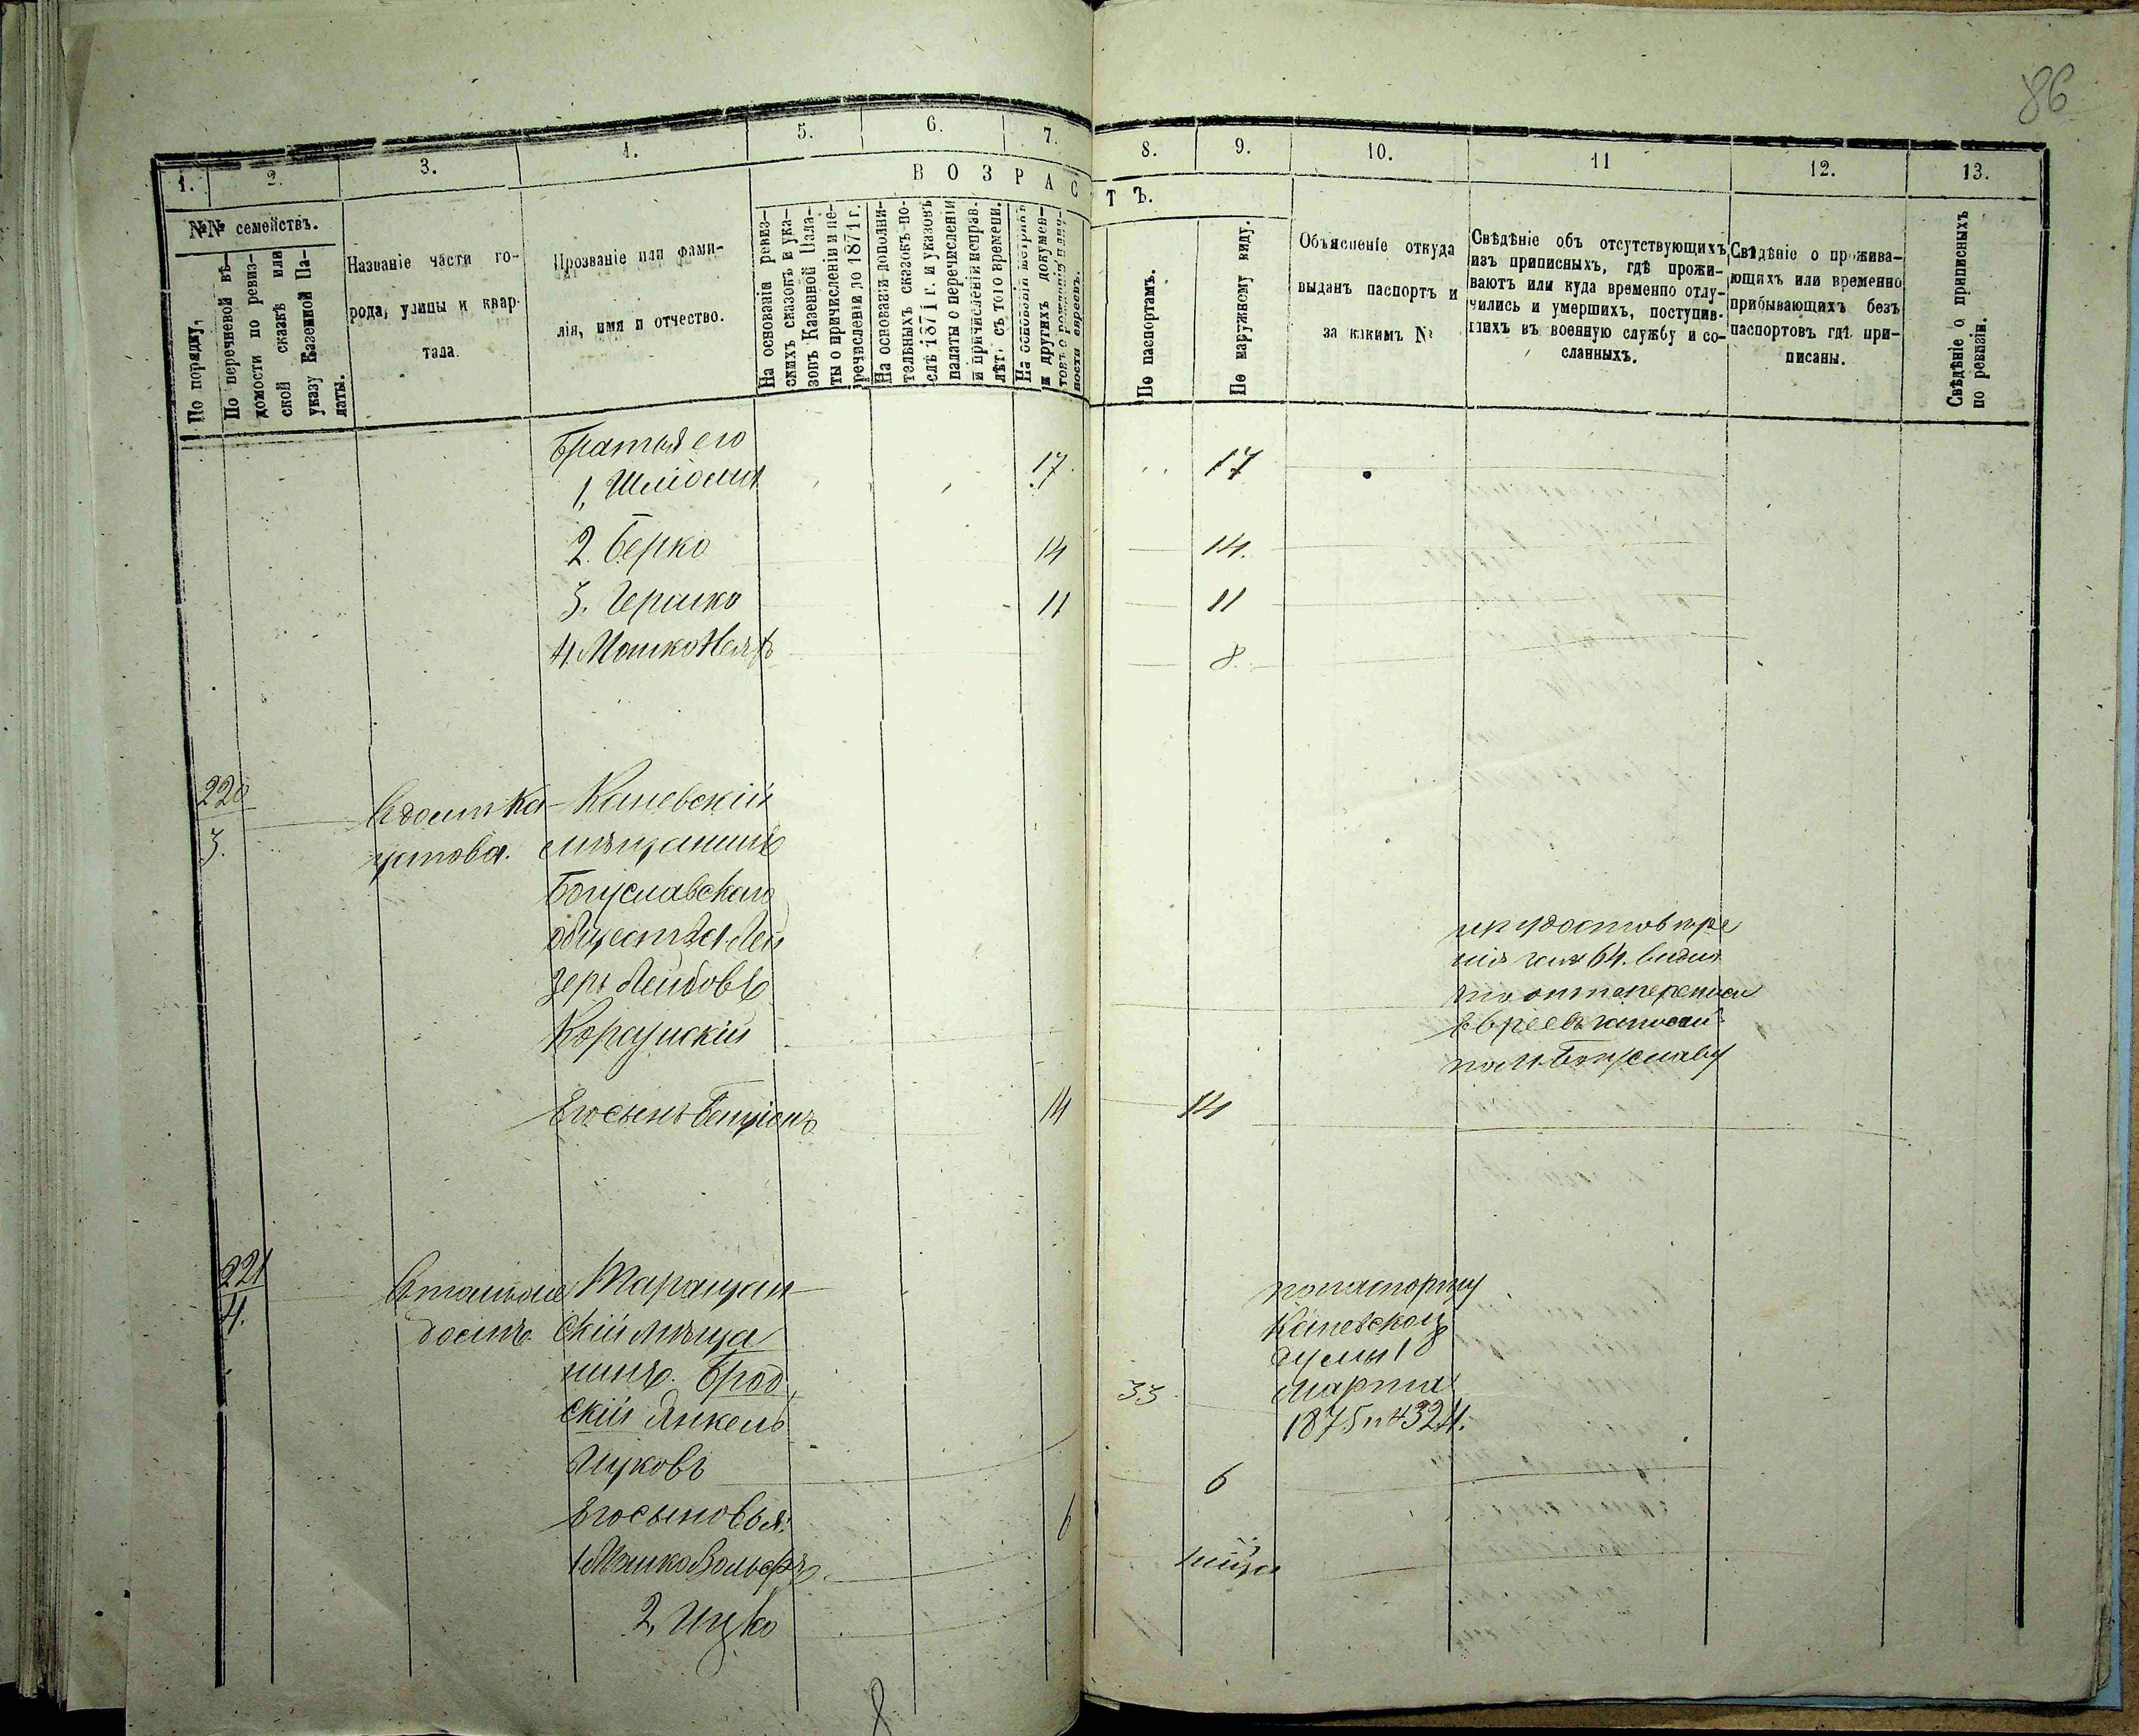 86
1.
2.
3.
4.
5.
6.
7.
8.
9.
10.
11
12.
13.
В О З Р А С
Т Ъ.
№№ семействъ.
По порядку.
По перечневой вѣ-
домости по ревиз-
ской сказкѣ или
указу Казенной Па-
латы.
Названіе части го-
рода, улицы и квар-
тала.
Прозваніе или фами-
лія, имя и отчество.
На основаніи ревиз-
скихъ сказокъ и ука-
зовъ Казенной Пала-
ты о причисленіи и пе-
речисленіи до 1871 г.
На основаніи дополни-
тельныхъ сказокъ по-
слѣ 1871 г. и указовъ
палаты о перечисленіи
и причисленіи исправ.
лѣт. съ того времени.
На основаніи метрикъ
и другихъ докумен-
товъ о рожденіи
ности евреевъ.
По паспортамъ.
По наружному виду.
Объясненіе откуда
выданъ паспортъ и
за какимъ №
Свѣдѣніе объ отсутствующихъ
изъ приписныхъ, гдѣ прожи-
ваютъ или куда временно отлу-
чились и умершихъ, поступив-
шихъ въ военную службу и со-
сланныхъ.
Свѣдѣніе о прожива-
ющихъ или временно
прибывающихъ безъ
паспортовъ гдѣ при-
писаны.
Свѣдѣніе о приписныхъ
по ревизіи.
Братья его
1, 17. 17
2. Берко 14 14.
3. Гершко 11 11
4. Мошко 8.
220
3.
Каневскій
мѣщанинъ
Богуславскаго
общества Лей
зеръ Лейбовъ
Корсунскій
64.
по м. Богуславу
Его сынъ Бенціонъ 14 14
221
4.
Таращан
скій мѣща
нинъ. Брод
скій Янкель
Ицковъ
33
по паспорту
Каневской
думы 18
марта
1875 n 4324.
Его сыновья: 6 6
1. Мошко Вольфъ
2, Ицко
8